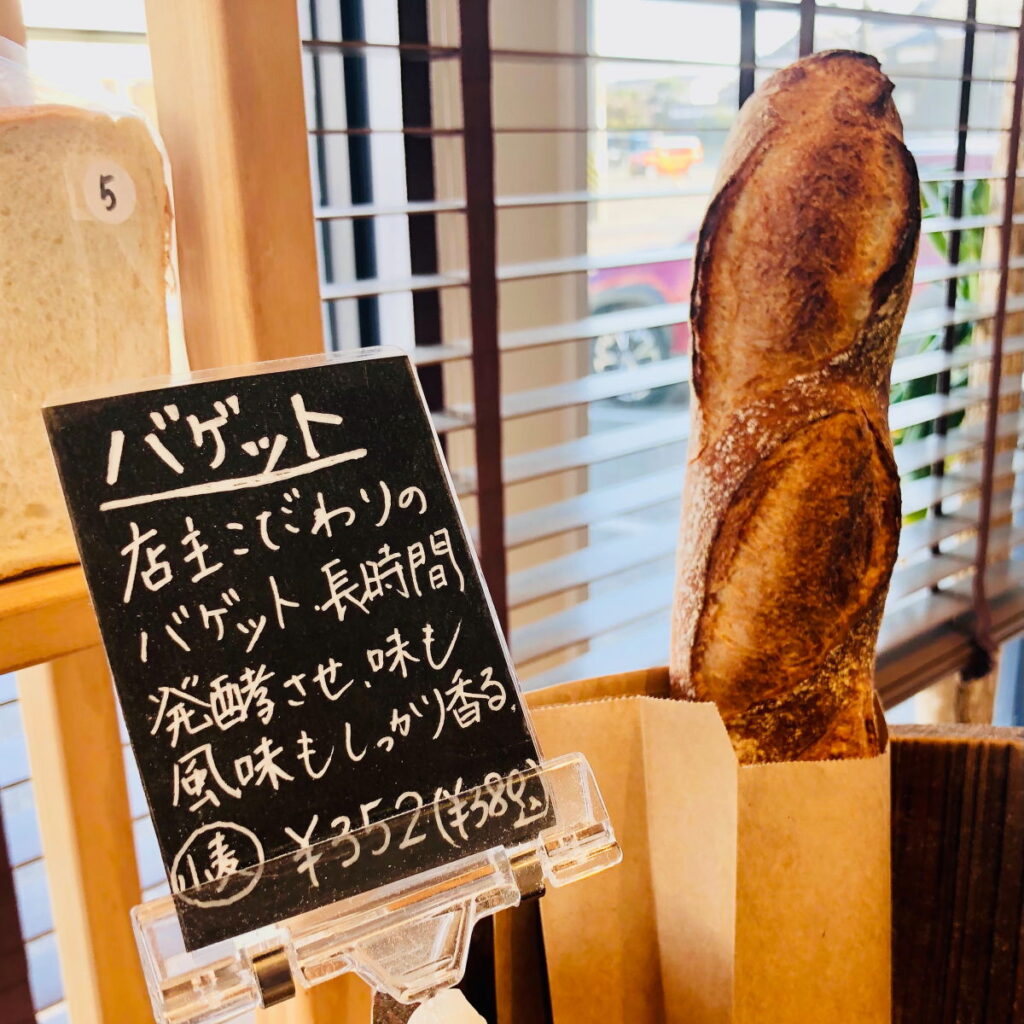 5
バゲット
店主こだわりの
バゲット.長時間
発酵させ、味も
風味もしっかり香る。
小麦 ¥352(¥380込)